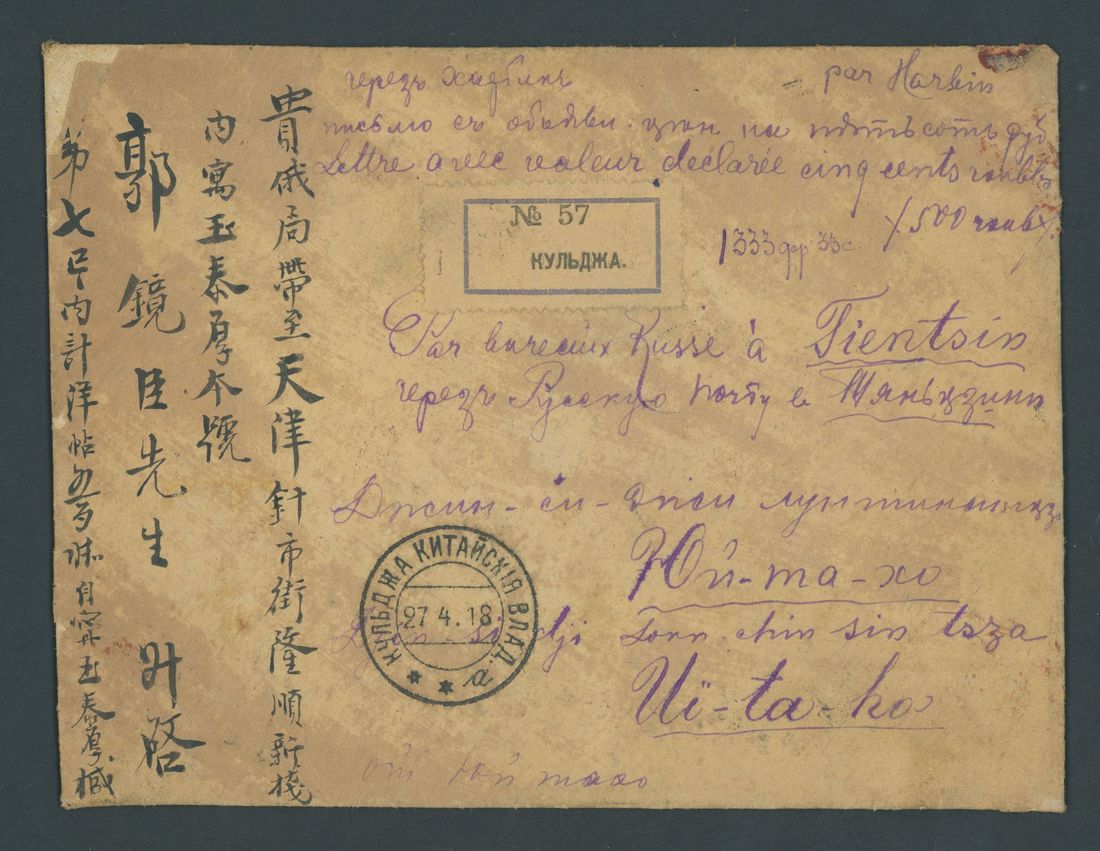 черезъ Харбинъ par Harbin
письмо съ объяви. цѣн. на пятьсотъ руб.
Lettre avec valeur declarée cinq cents roubl.
/500 roubl/.
№ 57
КУЛЬДЖА.
1333 фр 33 с.
Par Russe à Tientsin
черезъ Русскую почту в Тяньцзинъ
Джин-си-джи
Юй-та-хо
sin tsza
Ui-ta-ho
КУЛЬДЖА КИТАЙСКІЯ ВЛАД. а
27 4. 18
от Юй тахо
貴俄局帶至天津針市街隆順新棧
內寓玉泰厚本號
郭鏡臣先生升啓
第七号內計洋帖自寧玉泰厚椷